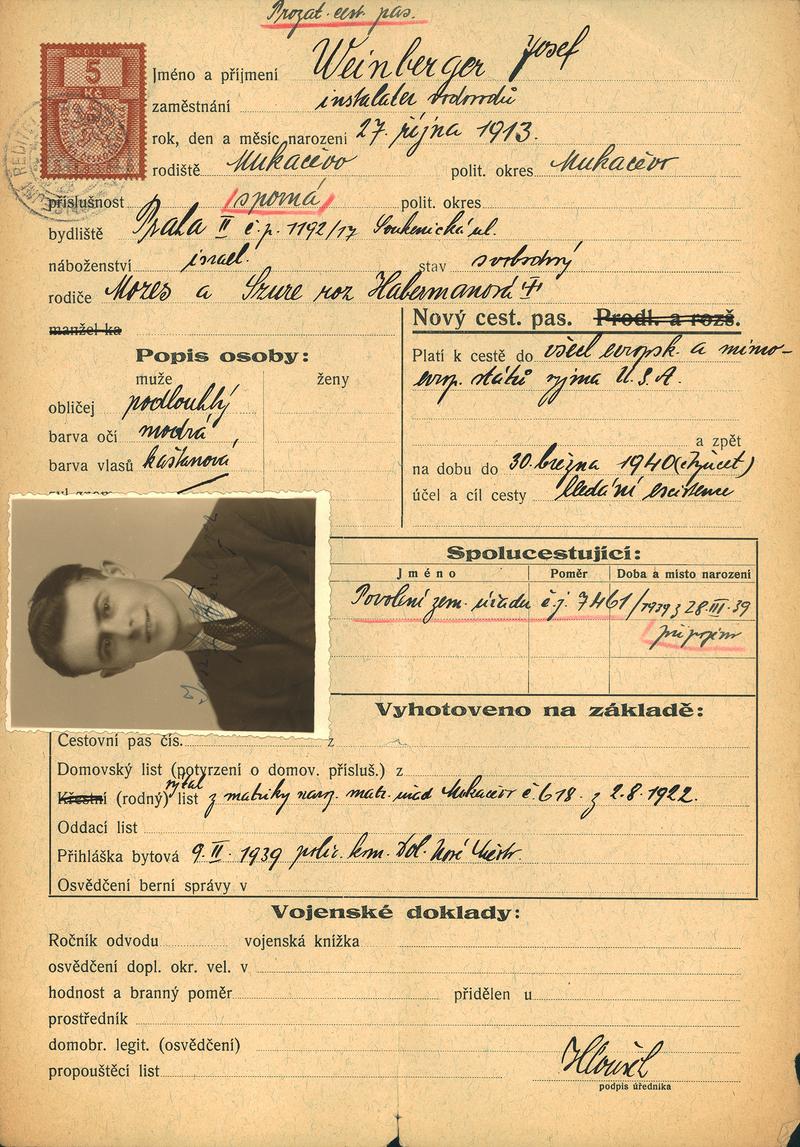 Prozat. cest. pas.
5
Kč
Jméno a příjmení Weinberger Josef
zaměstnání instalater vodovodů
rok, den a měsíc narození 27. října 1913.
rodiště Mukačevo polit. okres Mukačevo
příslušnost (sporná) polit. okres
bydliště Praha II č.p. 1192/17 Soukenická ul.
náboženství israel. stav svobodný
rodiče Mozes a Szure roz Habermanová
manžel-ka
Nový cest. pas. Prodl. a rozš.
Popis osoby:
muže ženy
obličej podlouhlý
barva očí modrá
barva vlasů kaštanová
Platí k cestě do všech evropsk. a mimo-
evrop. států vyjma U.S.A.
a zpět
na dobu do 30. března 1940 (čtyřicet)
účel a cíl cesty hledání existence
Spolucestující:
Jméno Poměr Doba a místo narození
Povolení zem. úřadu č.j. 7461/1939 z 28.III.39
připojeno
Vyhotoveno na základě:
Cestovní pas čís. z
Domovský list (potvrzení o domov. přísluš.) z
výtah
Křestní (rodný) list z matriky naroz. matr. úřad Mukačevo č. 618. z 2.8.1922.
Oddací list
Přihláška bytová 9.II.1939 polic. kom. Dol. Nové Město
Osvědčení berní správy v
Vojenské doklady:
Ročník odvodu vojenská knížka
osvědčení dopl. okr. vel. v
hodnost a branný poměr přidělen u
prostředník
domobr. legit. (osvědčení)
propouštěcí list
podpis úředníka